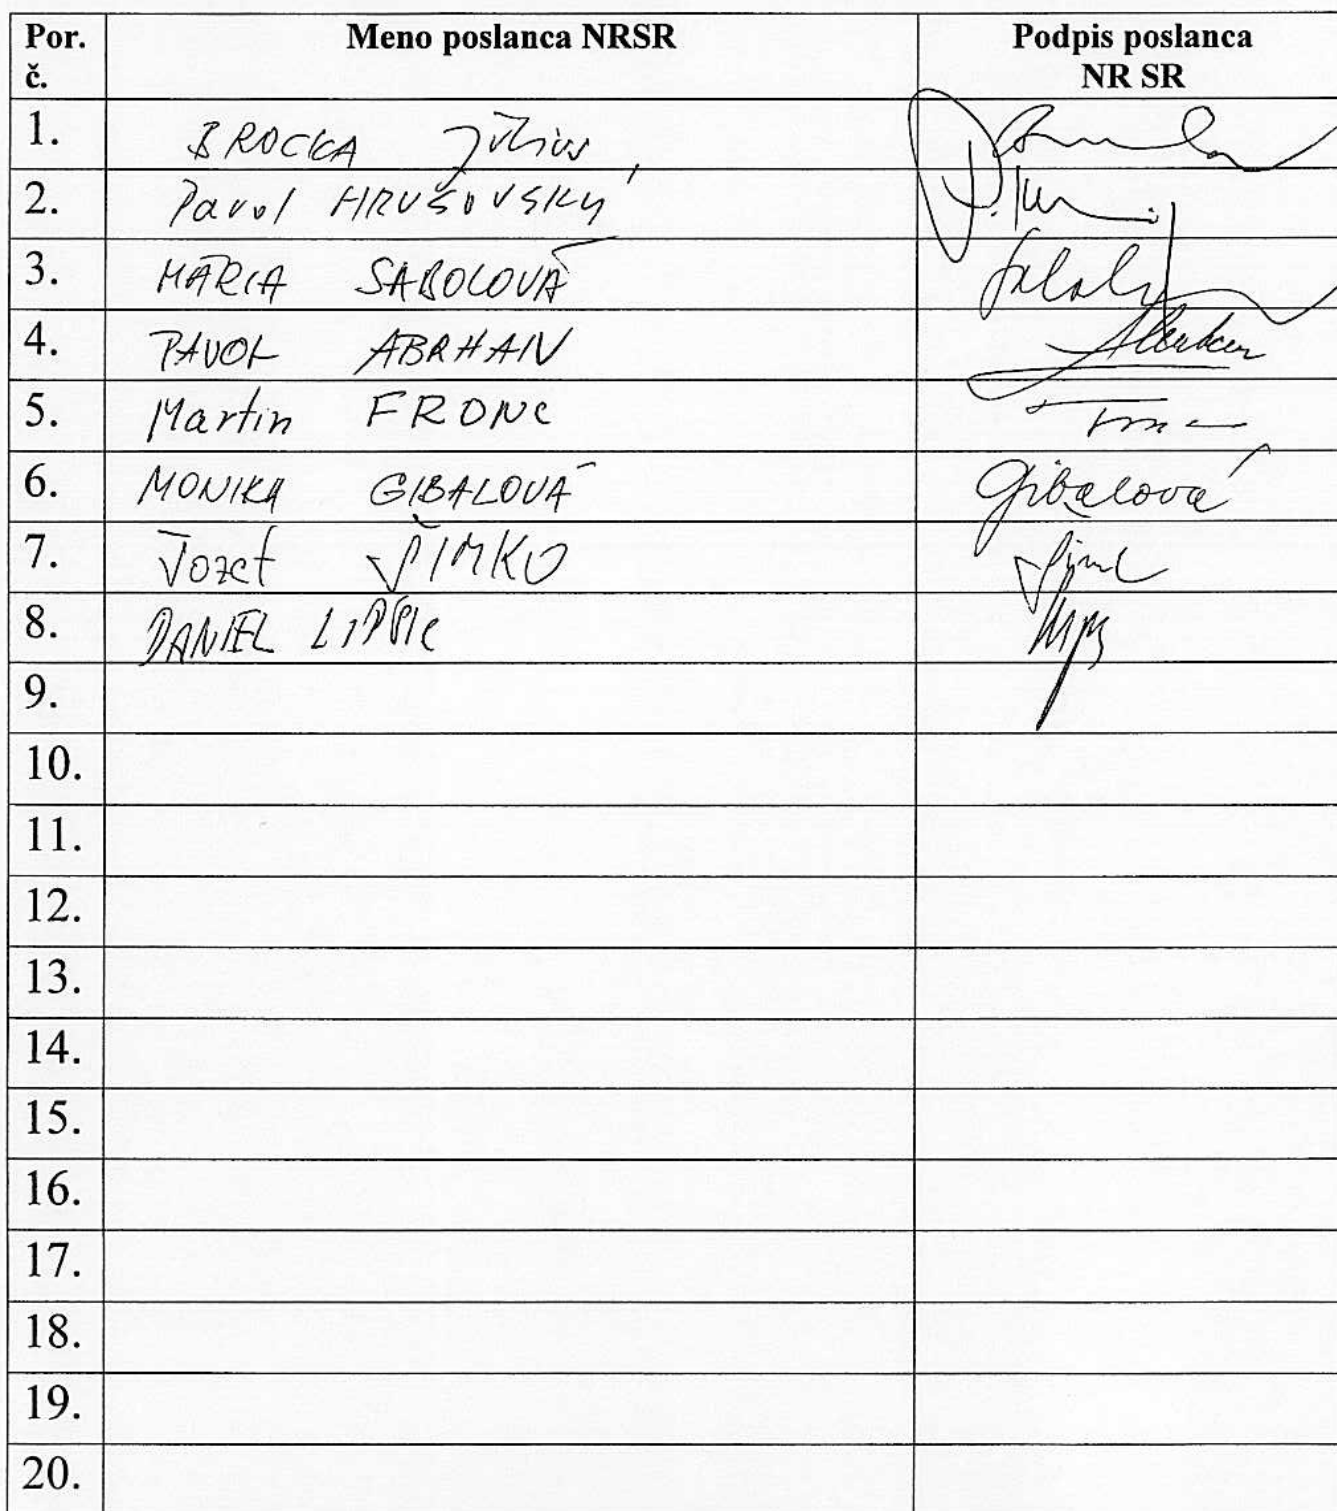 Por. č. Meno poslanca NRSR Podpis poslanca NR SR
1. BROCKA Július
2. Pavol HRUŠOVSKÝ
3. MÁRIA SABOLOVÁ
4. PAVOL ABRHAN
5. Martin FRONC
6. MONIKA GIBALOVÁ Gibalová
7. Jozef ŠIMKO
8. DANIEL LIPŠIC
9.
10.
11.
12.
13.
14.
15.
16.
17.
18.
19.
20.